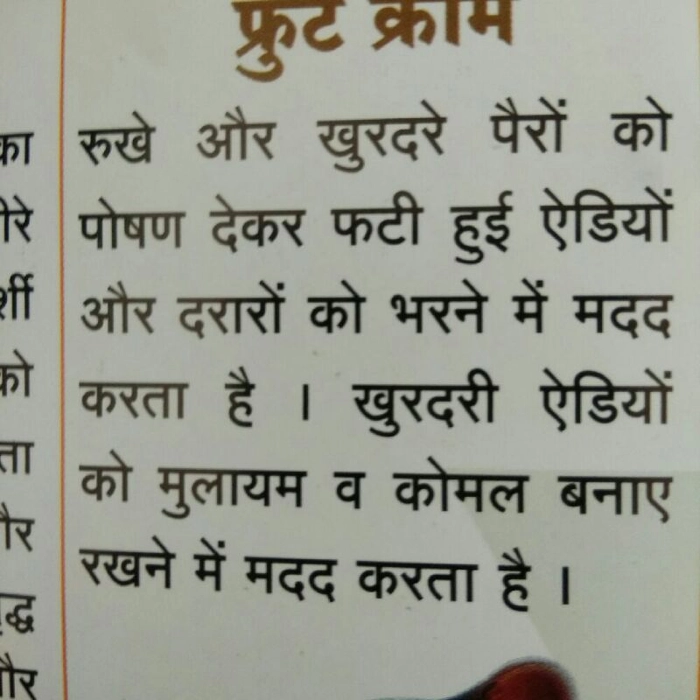 फ्रुट क्रीम
रुखे और खुरदरे पैरों को
पोषण देकर फटी हुई ऐडियों
और दरारों को भरने में मदद
करता है । खुरदरी ऐडियों
को मुलायम व कोमल बनाए
रखने में मदद करता है ।